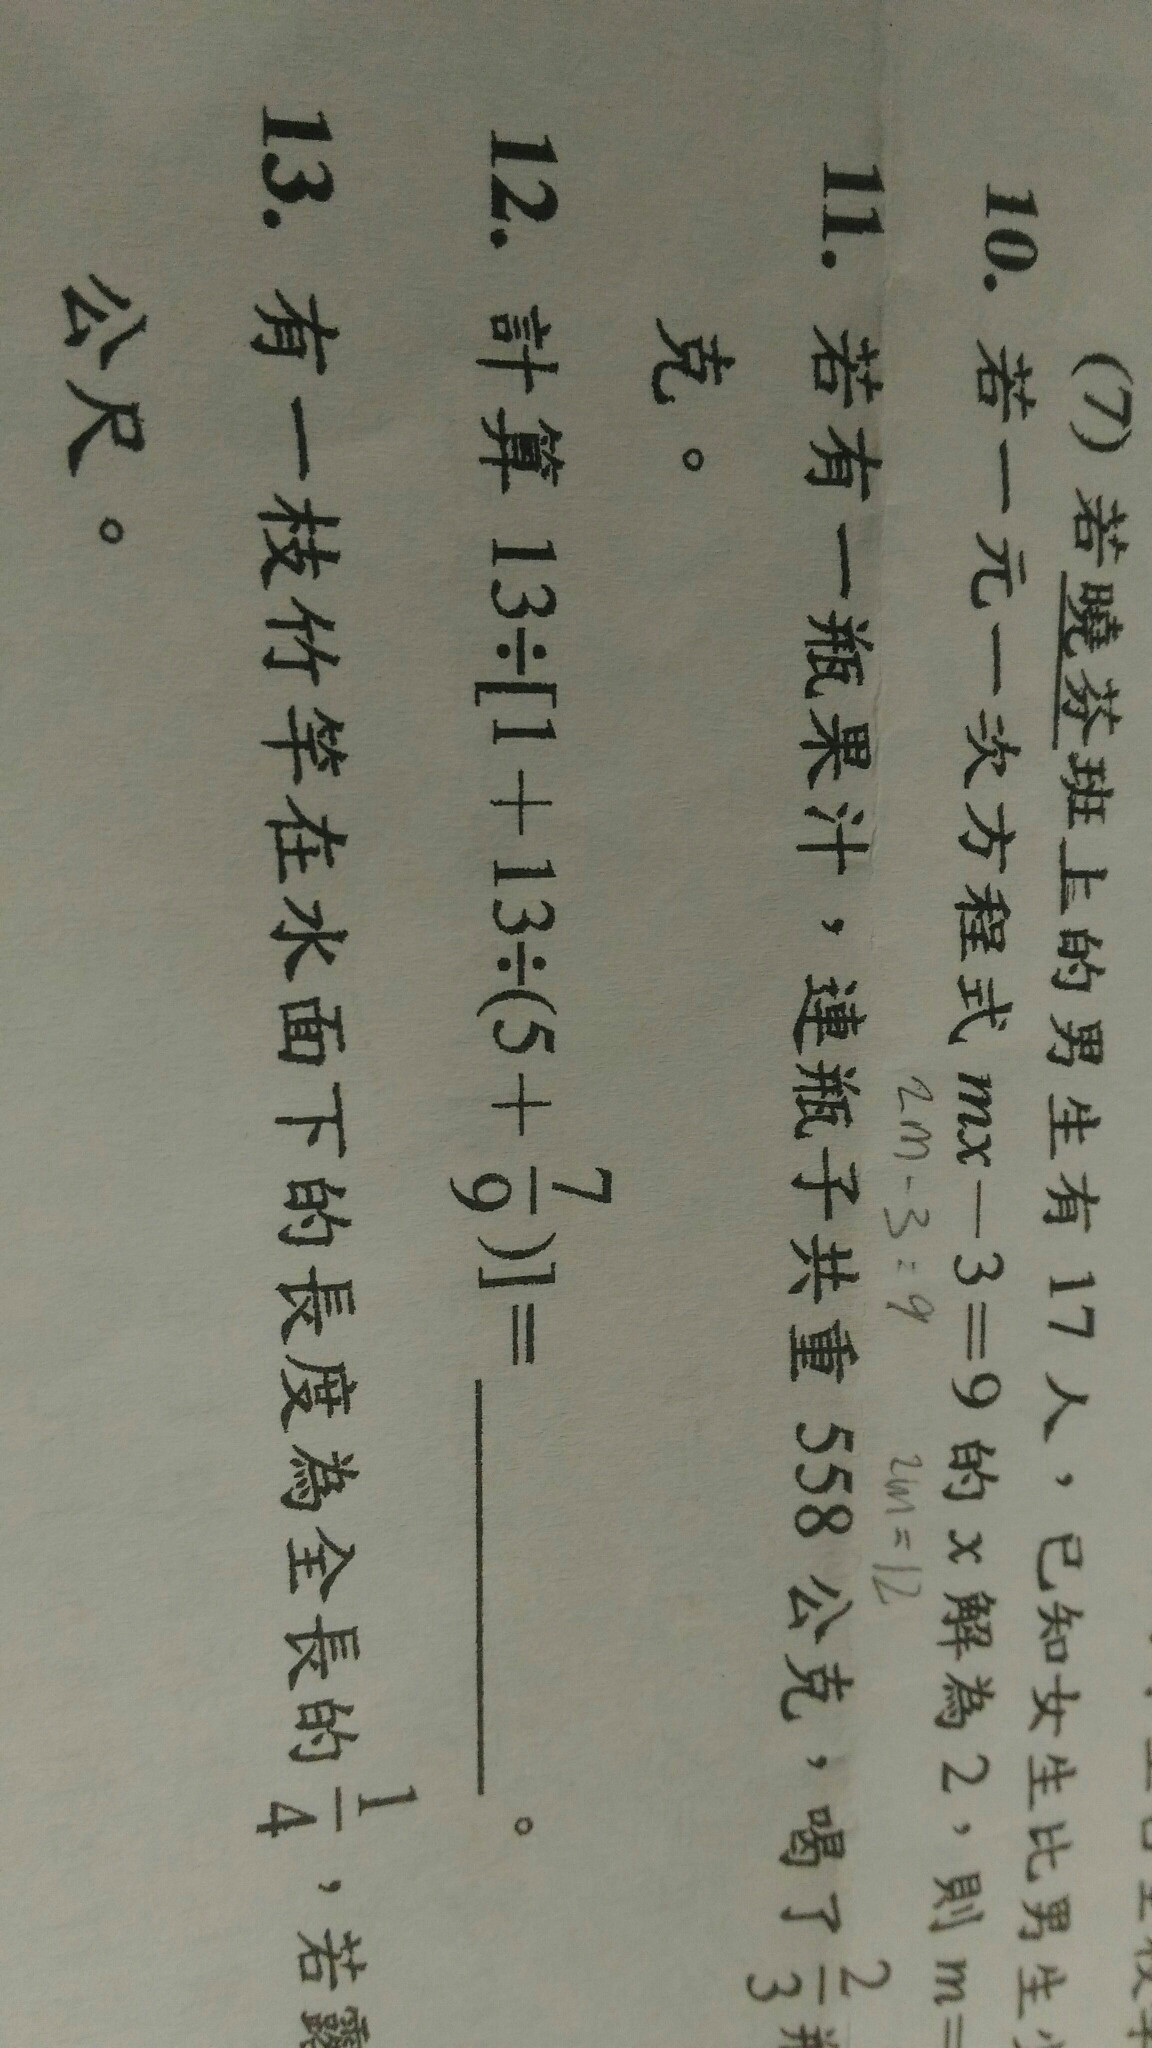 (7) 若曉芬班上的男生有 17 人，已知女生比男生
10. 若一元一次方程式 mx－3＝9 的 x 解為 2，則 m＝
2m-3=9 2m=12
11. 若有一瓶果汁，連瓶子共重 558 公克，喝了 2/3
克。
12. 計算 13÷[1＋13÷(5＋7/9)]＝______。
13. 有一枝竹竿在水面下的長度為全長的 1/4，若露
公尺。